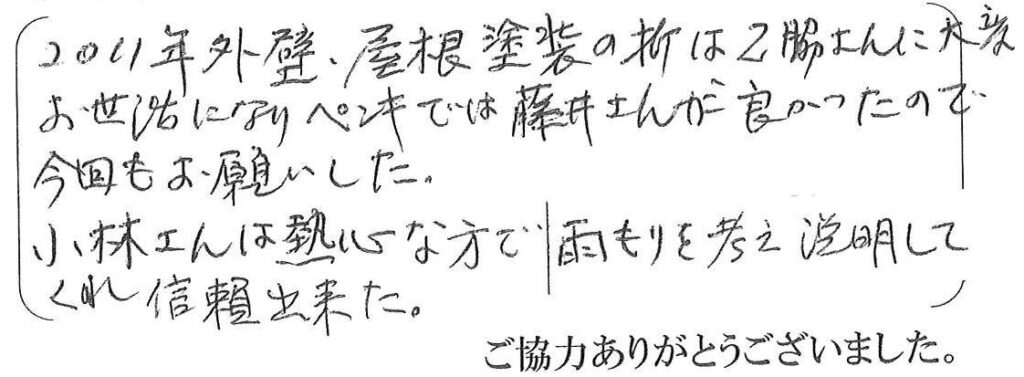 2011年外壁、屋根塗装の折は乙脇さんに大変
お世話になりペンキでは藤井さんが良かったので
今回もお願いした。
小林さんは熱心な方で雨もりを考え説明して
くれ信頼出来た。
ご協力ありがとうございました。